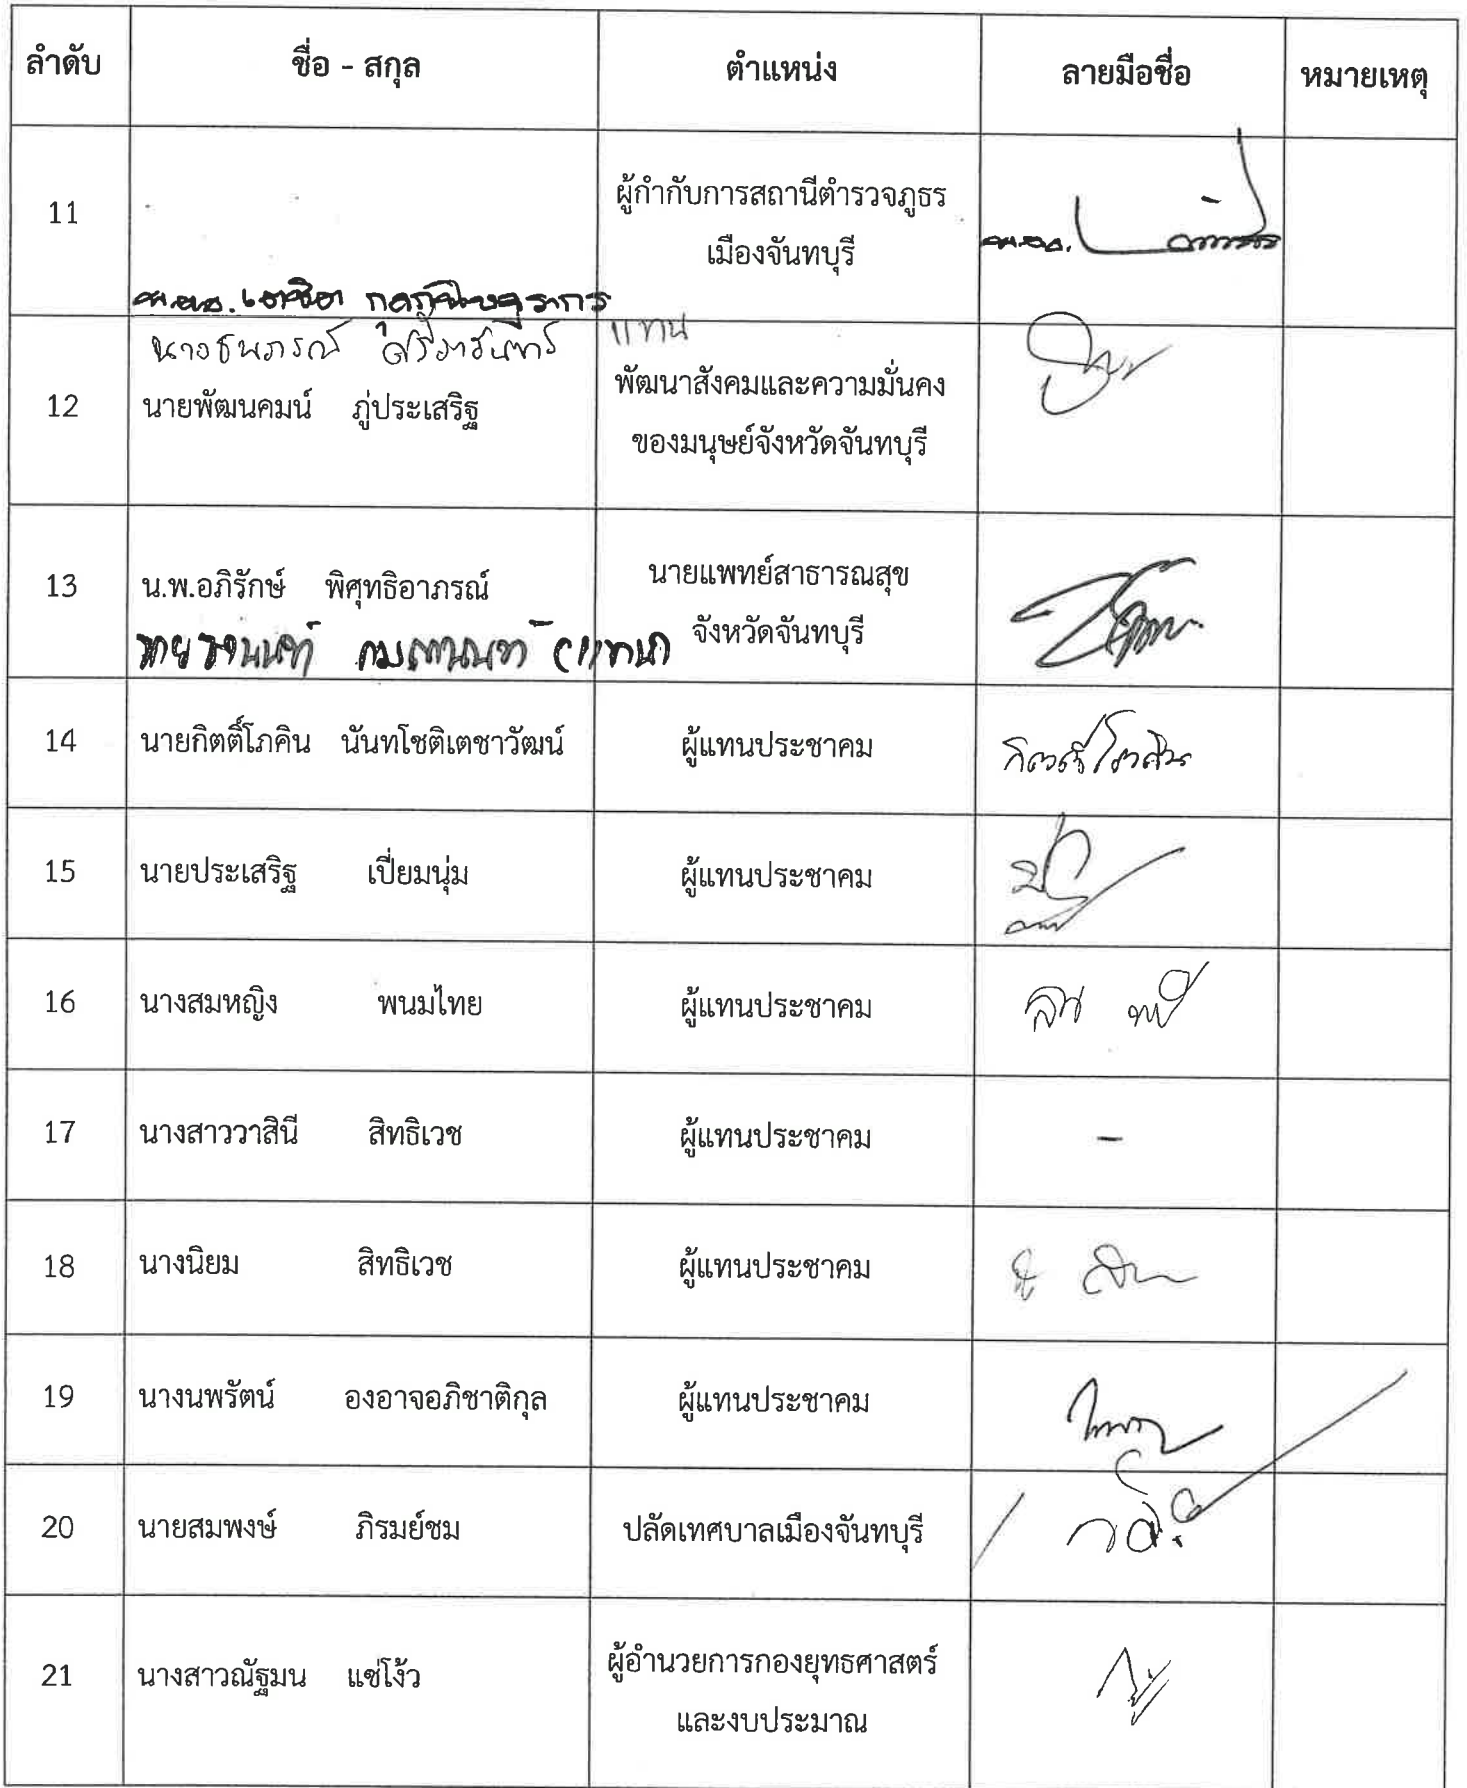 ลำดับ ชื่อ - สกุล ตำแหน่ง ลายมือชื่อ หมายเหตุ
11 ผู้กำกับการสถานีตำรวจภูธร
เมืองจันทบุรี
แทน
12 นายพัฒนคมน์ ภู่ประเสริฐ พัฒนาสังคมและความมั่นคง
ของมนุษย์จังหวัดจันทบุรี
13 น.พ.อภิรักษ์ พิศุทธิอาภรณ์ นายแพทย์สาธารณสุข
จังหวัดจันทบุรี
(แทน)
14 นายกิตติ์โภคิน นันทโชติเตชาวัฒน์ ผู้แทนประชาคม กิตติ์โภคิน
15 นายประเสริฐ เปี่ยมนุ่ม ผู้แทนประชาคม
16 นางสมหญิง พนมไทย ผู้แทนประชาคม
17 นางสาววาสินี สิทธิเวช ผู้แทนประชาคม -
18 นางนิยม สิทธิเวช ผู้แทนประชาคม
19 นางนพรัตน์ องอาจอภิชาติกุล ผู้แทนประชาคม
20 นายสมพงษ์ ภิรมย์ชม ปลัดเทศบาลเมืองจันทบุรี
21 นางสาวณัฐมน แซ่โง้ว ผู้อำนวยการกองยุทธศาสตร์
และงบประมาณ